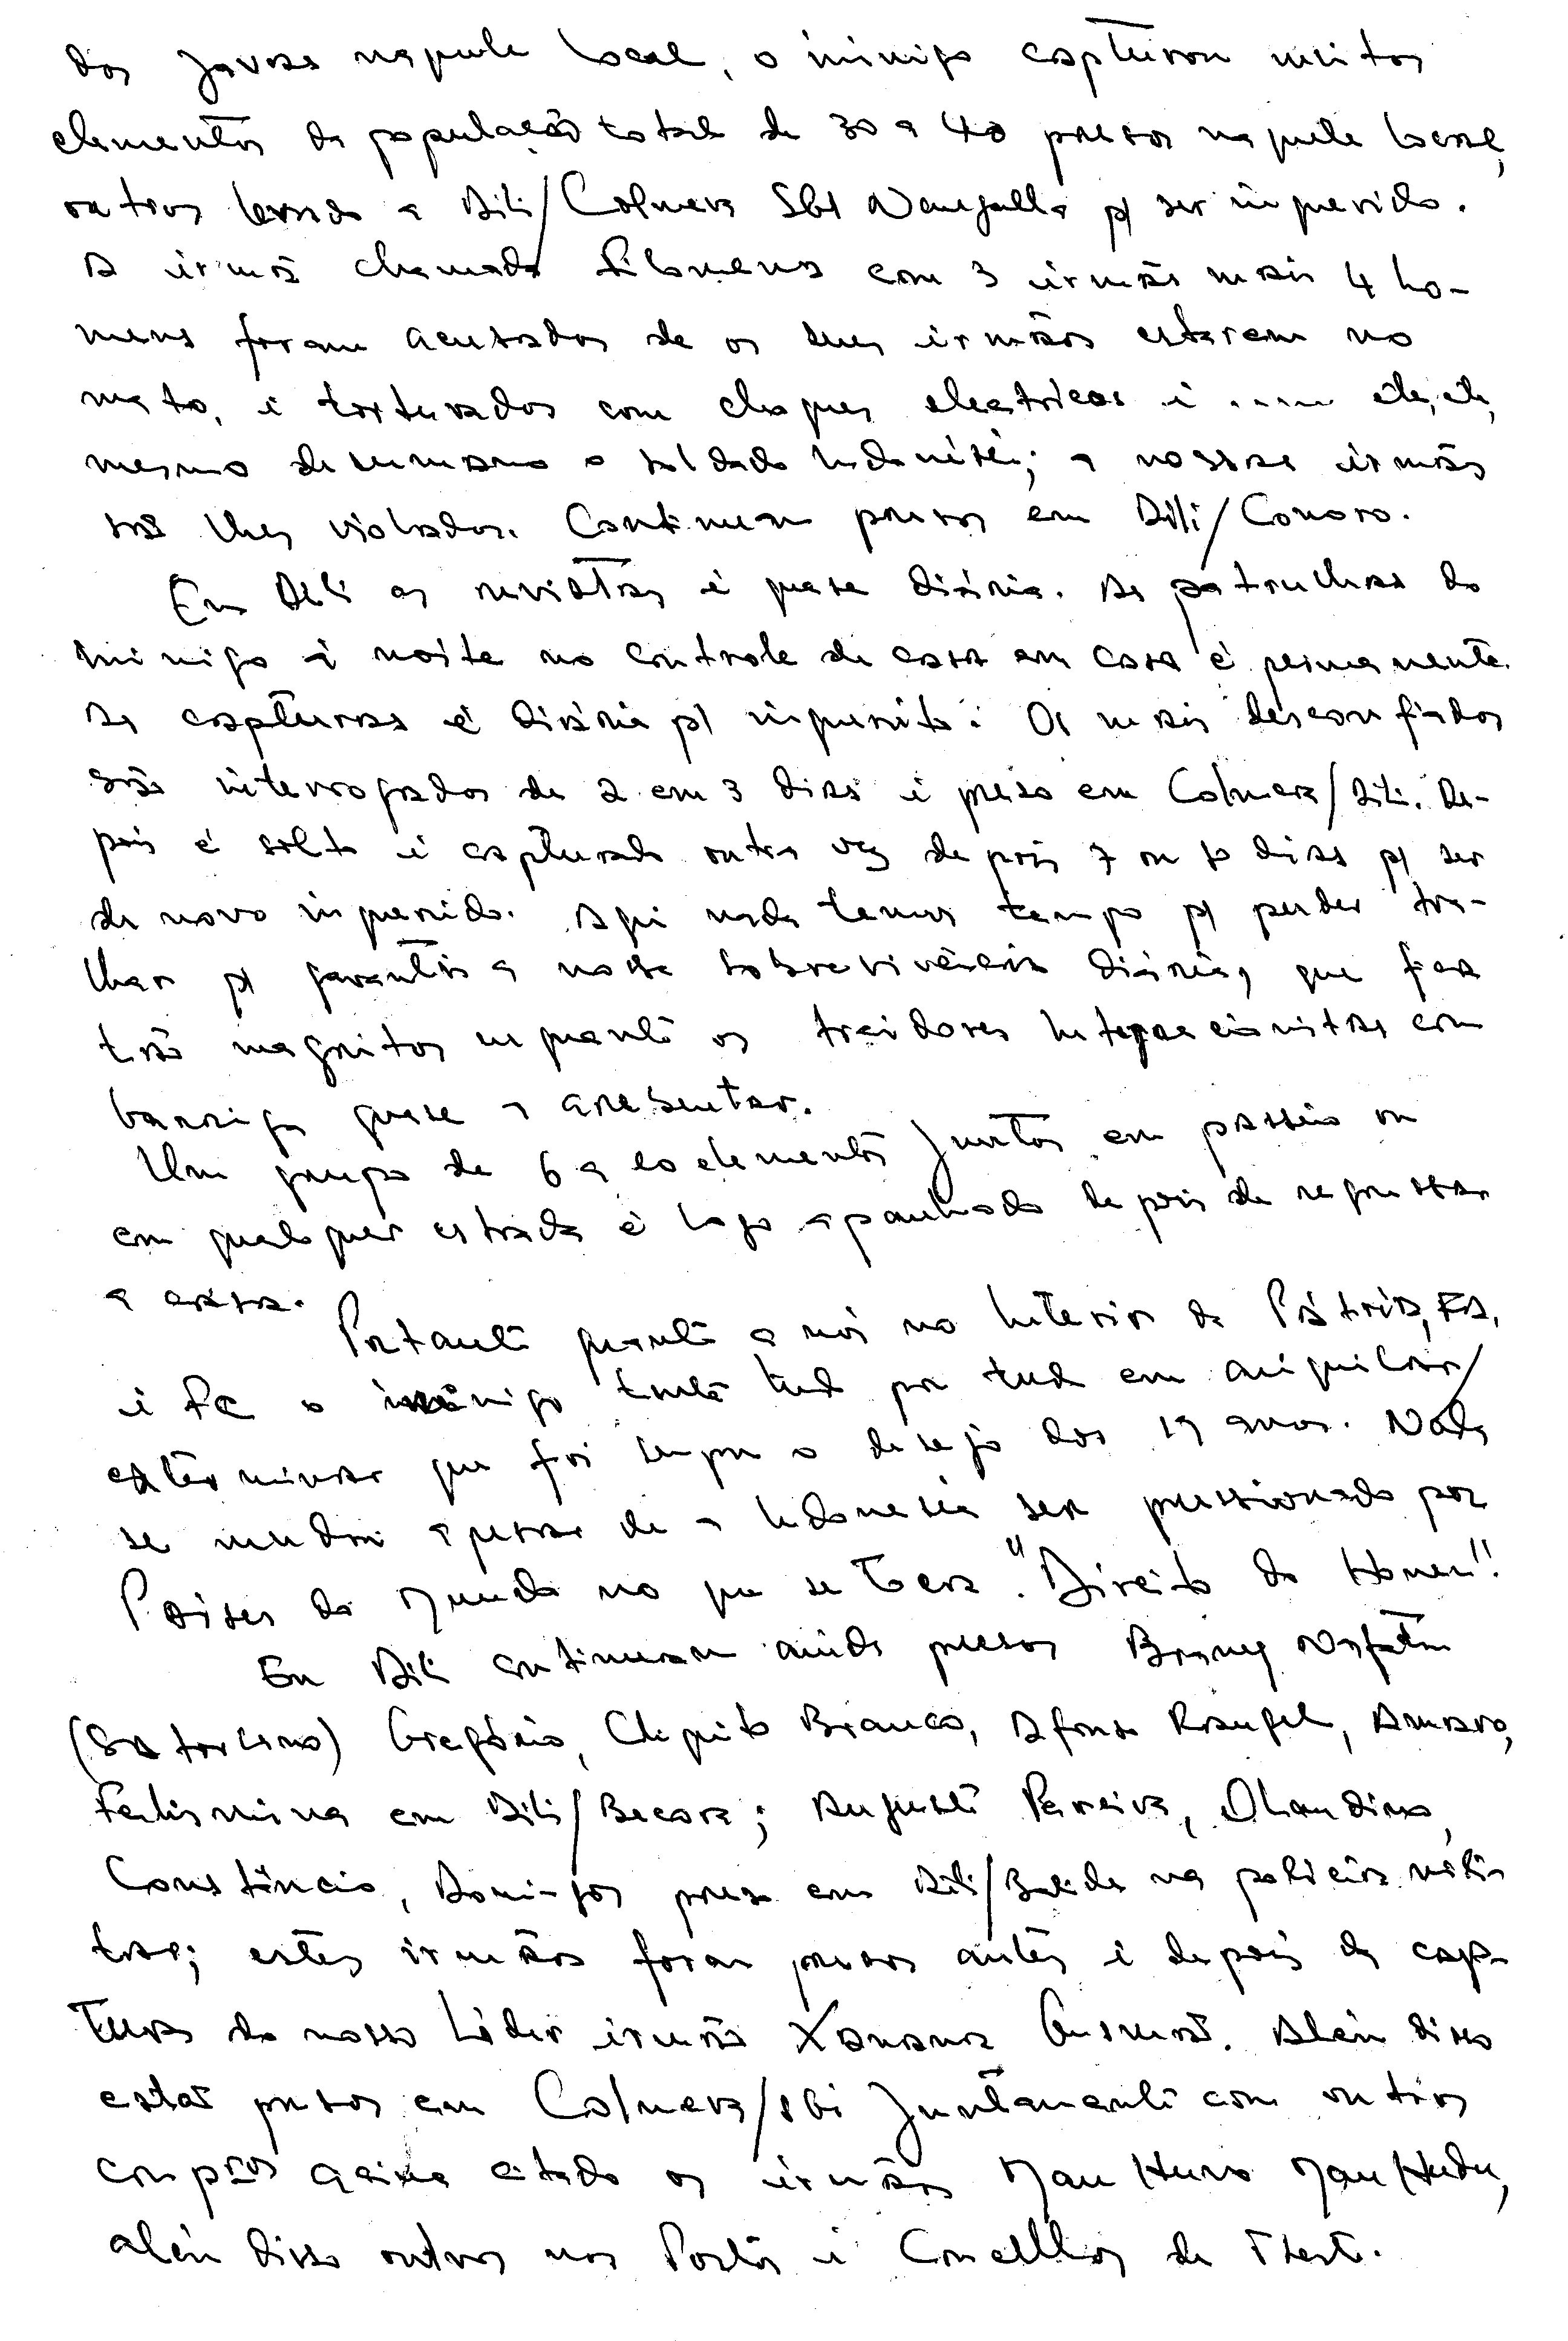 dos javas naquele local, o inimigo capturou muitos
elementos da população total de 30 a 40 presos naquele local,
outros levado a Dili/Colmera SGI p/ ser inquerido.
A irmã chamada Filomena com 3 irmãs mais 4 ho-
mens foram acusados de os seus irmãos estarem no
mato, i torturados com choques electricos i ..... etc, etc,
mesmo desumano o soldado Indonésio; a nossas irmãs
são lhes violados. Continuam presos em Dili/Comoro.
Em Dili as revistas é quase diária. As patrulhas do
inimigo à noite no controle de casa em casa é permanente.
As capturas é diária p/ inquerito. Os mais desconfiados
são interrogados de 2 em 3 dias i preso em Colmera/Dili. De-
pois é solto i capturado outra vez depois 7 ou 10 dias p/ ser
de novo inquerido. Aqui nada temos tempo p/ perder tra-
lhar p/ garantir a nossa sobrevivência diária, que fica
tão magritos enquanto os traidores Integracionistas com
barriga quase a arebentar.
Um grupo de 6 a 10 elementos juntos em passeio ou
em qualquer estrada é logo apanhado depois de regressar
a casa.
Portanto quanto a nós no Interior da Pátria, FA,
i FC o inimigo tenta tudo por tudo em aniquilar/
exterminar que foi sempre o desejo dos 19 anos. Nada
se mudou apesar de a Indonesia ser pressionado por
Países do Mundo no que se toca "Direito do Homem".
Em Dili continuam ainda presos Braney
(Saturlino) Gregório, Chiquito Branco, Afonso Rangel, Amaro,
Felismina em Dili/Becora; Augusto Pereira, Olandino,
Constâncio, Domingos preso em Dili/Balide na policia mili-
tar; estes irmãos foram presos antes i depois da cap-
tura do nosso Líder irmão Xanana Gusmão. Além disso
estão presos em Colmera/SGI juntamente com outros
comp^ros acima citado os irmãos Mau Huno Mau Hudu,
além disso outros nos Postos i Concelhos de T. Leste.